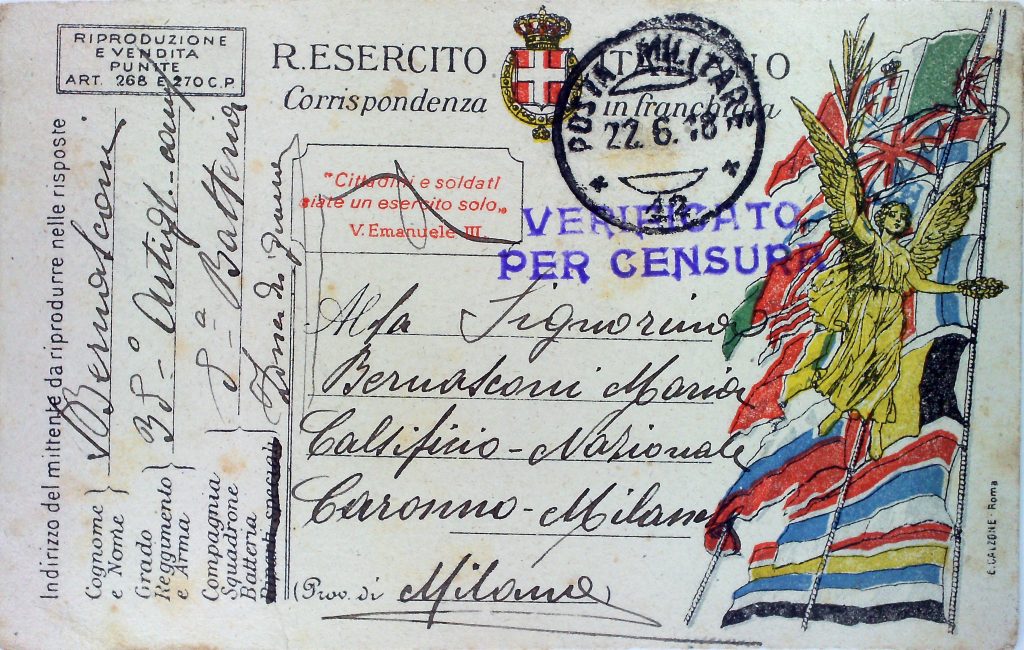 RIPRODUZIONE
E VENDITA
PUNITE
ART. 268 E 270 C.P.
R. ESERCITO ITALIANO
Corrispondenza in franchigia
POSTA MILITARE
22.6.18
"Cittadini e soldati
siate un esercito solo„
V. Emanuele III
VERIFICATO
PER CENSURA
Alla Signorina
Bernasconi Maria
Calsificio - Nazionale
Caronno - Milano
(Prov. di Milano)
Indirizzo del mittente da riprodurre nelle risposte
Cognome e Nome
Bernasconi
Grado Reggimento e Arma
Compagnia Squadrone Batteria
5ª Batteria
Zona di guerra
E. CALZONE - Roma